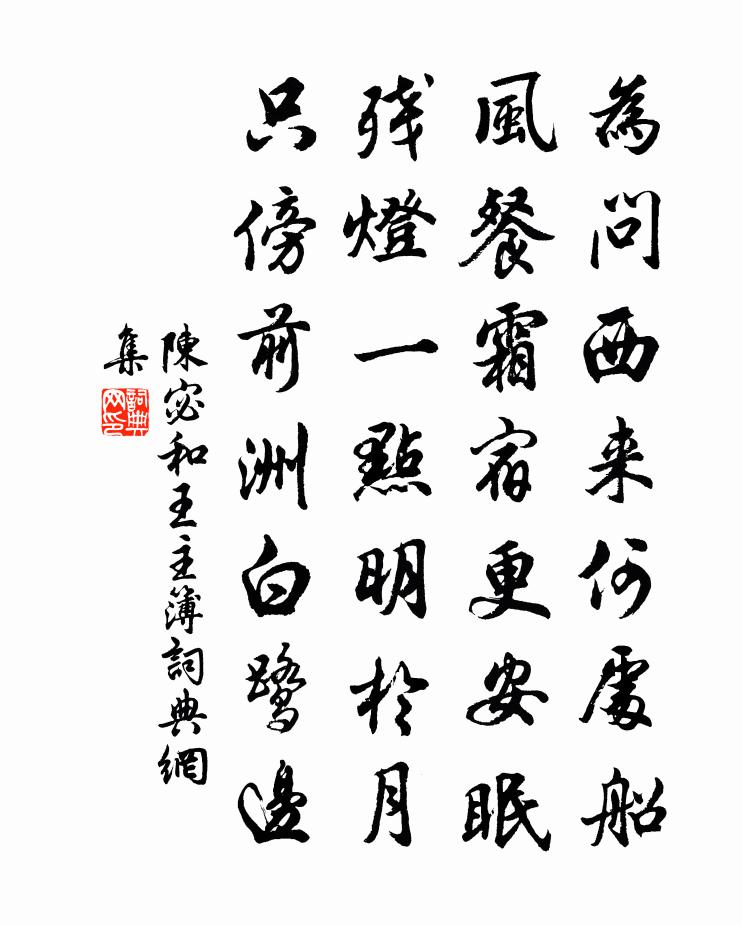 為問西来何處船
風餐霜宿更安眠
残燈一點明於月
只傍前洲白鷺邊
陳宓和王主簿詞典網
集
詞典網印